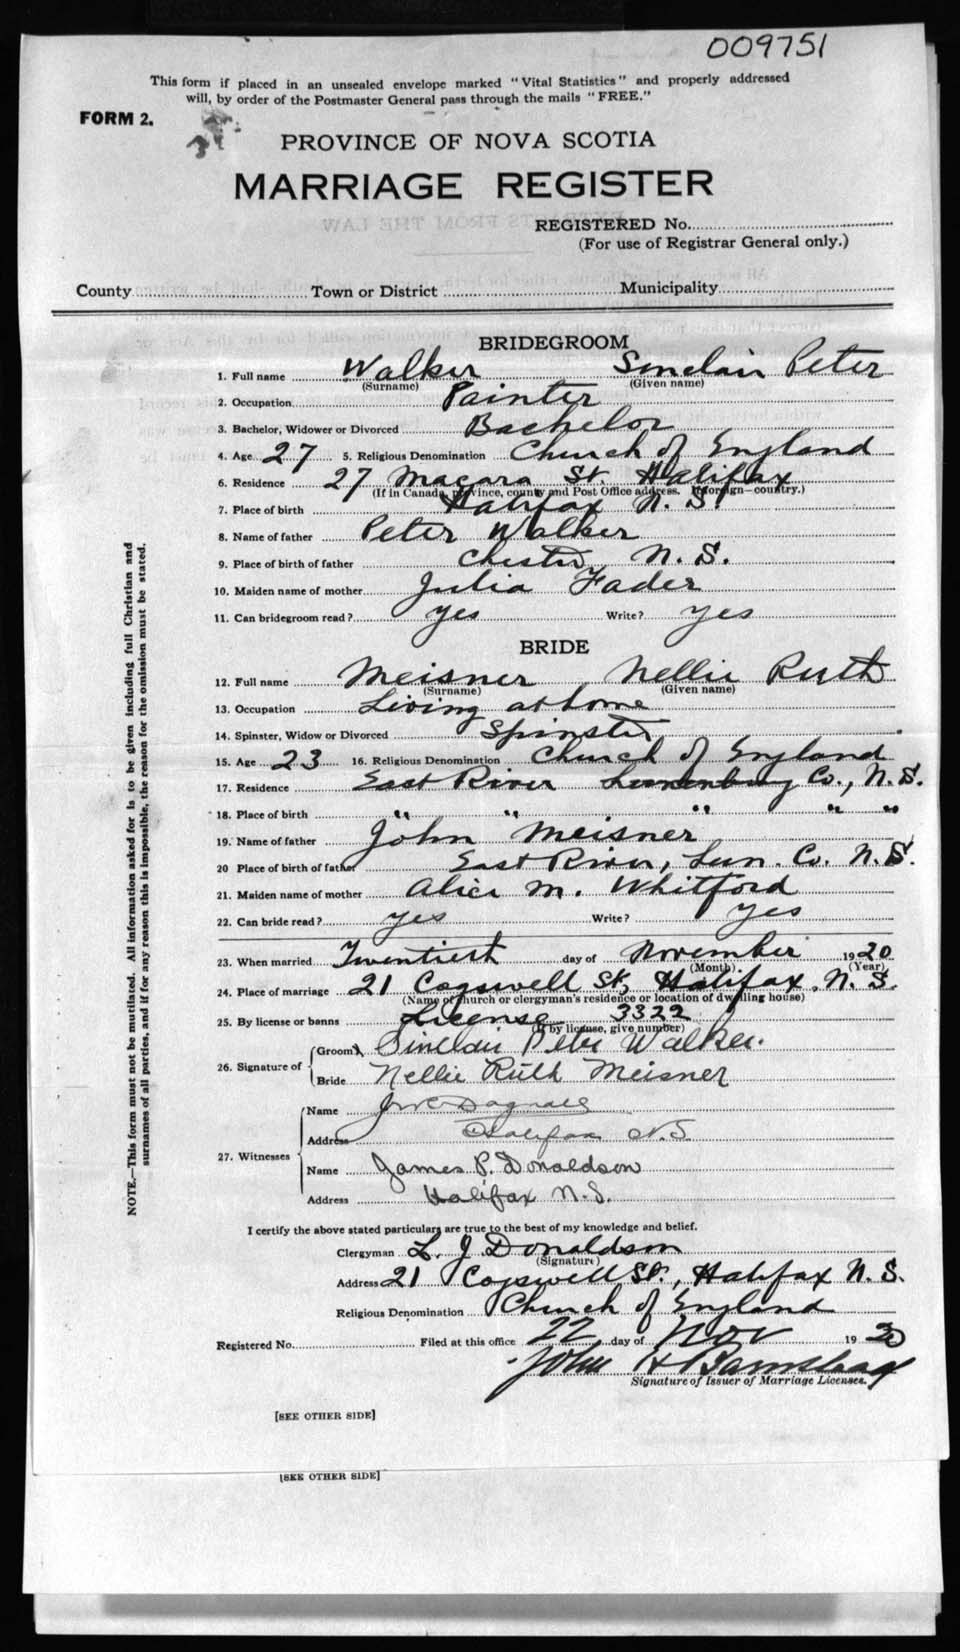 009751
This form if placed in an unsealed envelope marked "Vital Statistics" and properly addressed
will, by order of the Postmaster General pass through the mails "FREE."
FORM 2.
PROVINCE OF NOVA SCOTIA
MARRIAGE REGISTER
EXTRACTS FROM THE LAW
REGISTERED No.
(For use of Registrar General only.)
County Town or District Municipality
BRIDEGROOM
1. Full name Walker Sinclair Peter
(Surname) (Given name)
2. Occupation Painter
3. Bachelor, Widower or Divorced Bachelor
4. Age 27 5. Religious Denomination Church of England
6. Residence 27 Macara St. Halifax
(If in Canada, province, county and Post Office address. If foreign—country.)
7. Place of birth Halifax N. S.
8. Name of father Peter Walker
9. Place of birth of father Chester, N. S.
10. Maiden name of mother Julia Fader
11. Can bridegroom read? yes Write? yes
BRIDE
12. Full name Meisner Nellie Ruth
(Surname) (Given name)
13. Occupation Living at home
14. Spinster, Widow or Divorced Spinster
15. Age 23 16. Religious Denomination Church of England
17. Residence East River Lunenburg Co., N. S.
18. Place of birth " " " " "
19. Name of father John Meisner
20 Place of birth of father East River, Lun. Co. N. S.
21. Maiden name of mother Alice M. Whitford
22. Can bride read? yes Write? yes
23. When married Twentieth day of November 1920
(Month) (Year)
24. Place of marriage 21 Cogswell St, Halifax, N. S.
(Name of church or clergyman's residence or location of dwelling house)
25. By license or banns License 3322
(If by license, give number)
26. Signature of
Groom Sinclair Peter Walker.
Bride Nellie Ruth Meisner
27. Witnesses
Name Dagnall
Address Halifax N.S
Name James P. Donaldson
Address Halifax N.S.
I certify the above stated particulars are true to the best of my knowledge and belief.
Clergyman L. J. Donaldson
(Signature)
Address 21 Cogswell St., Halifax N. S.
Religious Denomination Church of England
Registered No. Filed at this office 22 day of Nov 1920
John H Barnstead
Signature of Issuer of Marriage Licenses.
[SEE OTHER SIDE]
[SEE OTHER SIDE]
NOTE.—This form must not be mutilated. All information asked for is to be given including full Christian and
surnames of all parties, and if for any reason this is impossible, the reason for the omission must be stated.